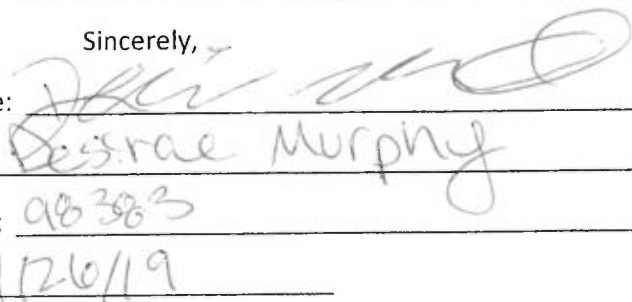 Sincerely,
e:
Desirae Murphy
: 98383
126/19